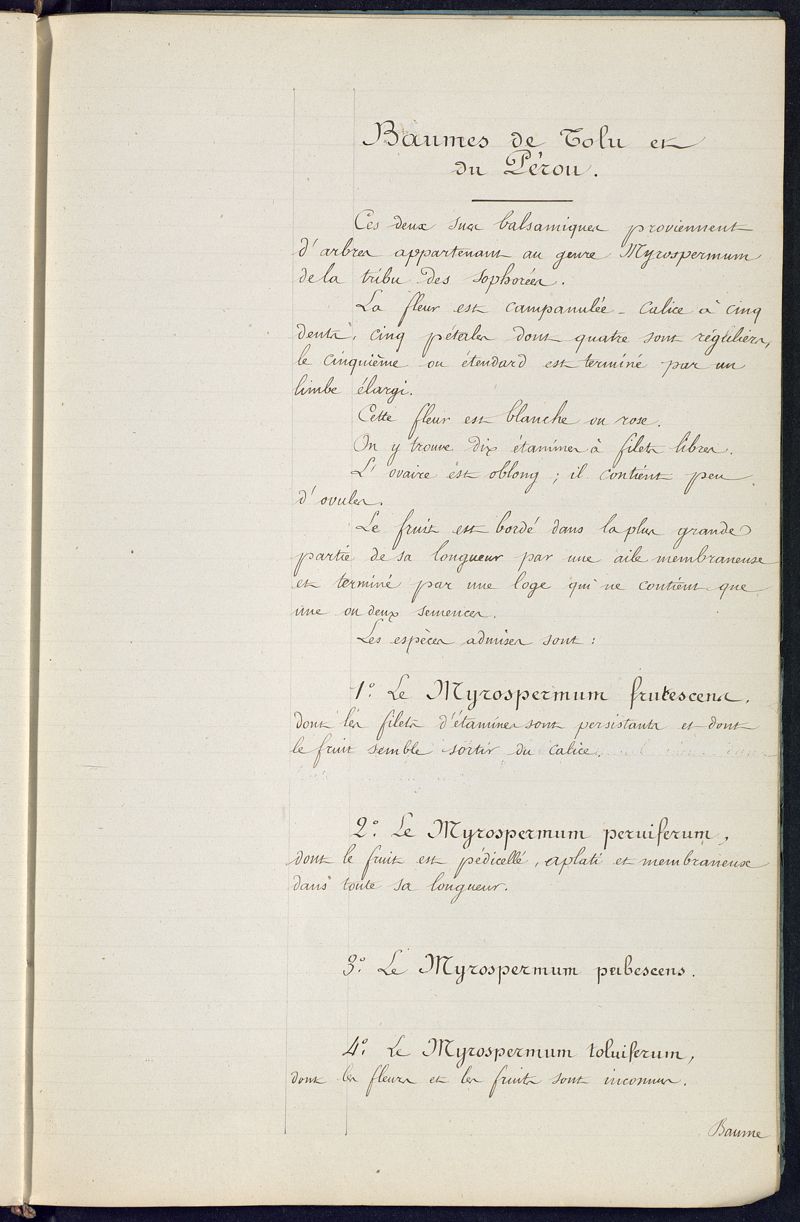 Baumes de Tolu et
du Pérou.
Ces deux sucs balsamiques proviennent
d'arbres appartenant au genre Myrospermum
de la tribu des Sophorées.
La fleur est campanulée - Calice à cinq
dents, cinq pétales dont quatre sont réguliers,
le cinquième ou étendard est terminé par un
limbe élargi.
Cette fleur est blanche ou rose.
On y trouve dix étamines à filets libres.
L'ovaire est oblong ; il contient peu
d'ovules.
Le fruit est bordé dans la plus grande
partie de sa longueur par une aile membraneuse
et terminé par une loge qui ne contient que
une ou deux semences.
Les espèces admises sont :
1º. Le Myrospermum frutescens,
dont les filets d'étamines sont persistants et dont
le fruit semble sortir du calice.
2º. Le Myrospermum peruiferum,
dont le fruit est pédicellé, aplati et membraneux
dans toute sa longueur.
3º. Le Myrospermum pubescens.
4º. Le Myrospermum toluiferum,
dont les fleurs et les fruits sont inconnus.
Baume